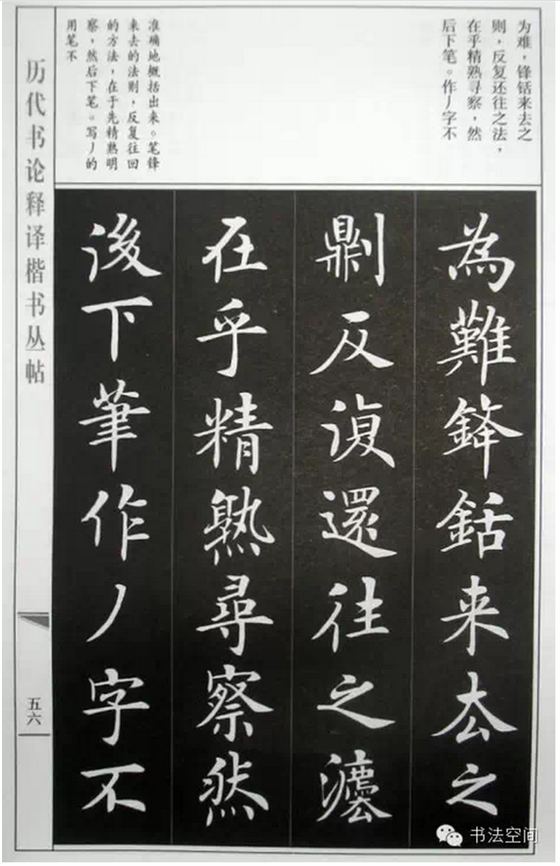 为难，锋铦来去之
则，反复还往之法，
在乎精熟寻察，然
后下笔。作丿字不
准确地概括出来。笔锋
来去的法则，反复往回
的方法，在于先精熟明
察，然后下笔。写丿的
用笔不
為難鋒銛来去之
剿反復還往之灋
在乎精熟尋察然
後下筆作丿字不
历代书论释译楷书丛帖
五六
书法空间